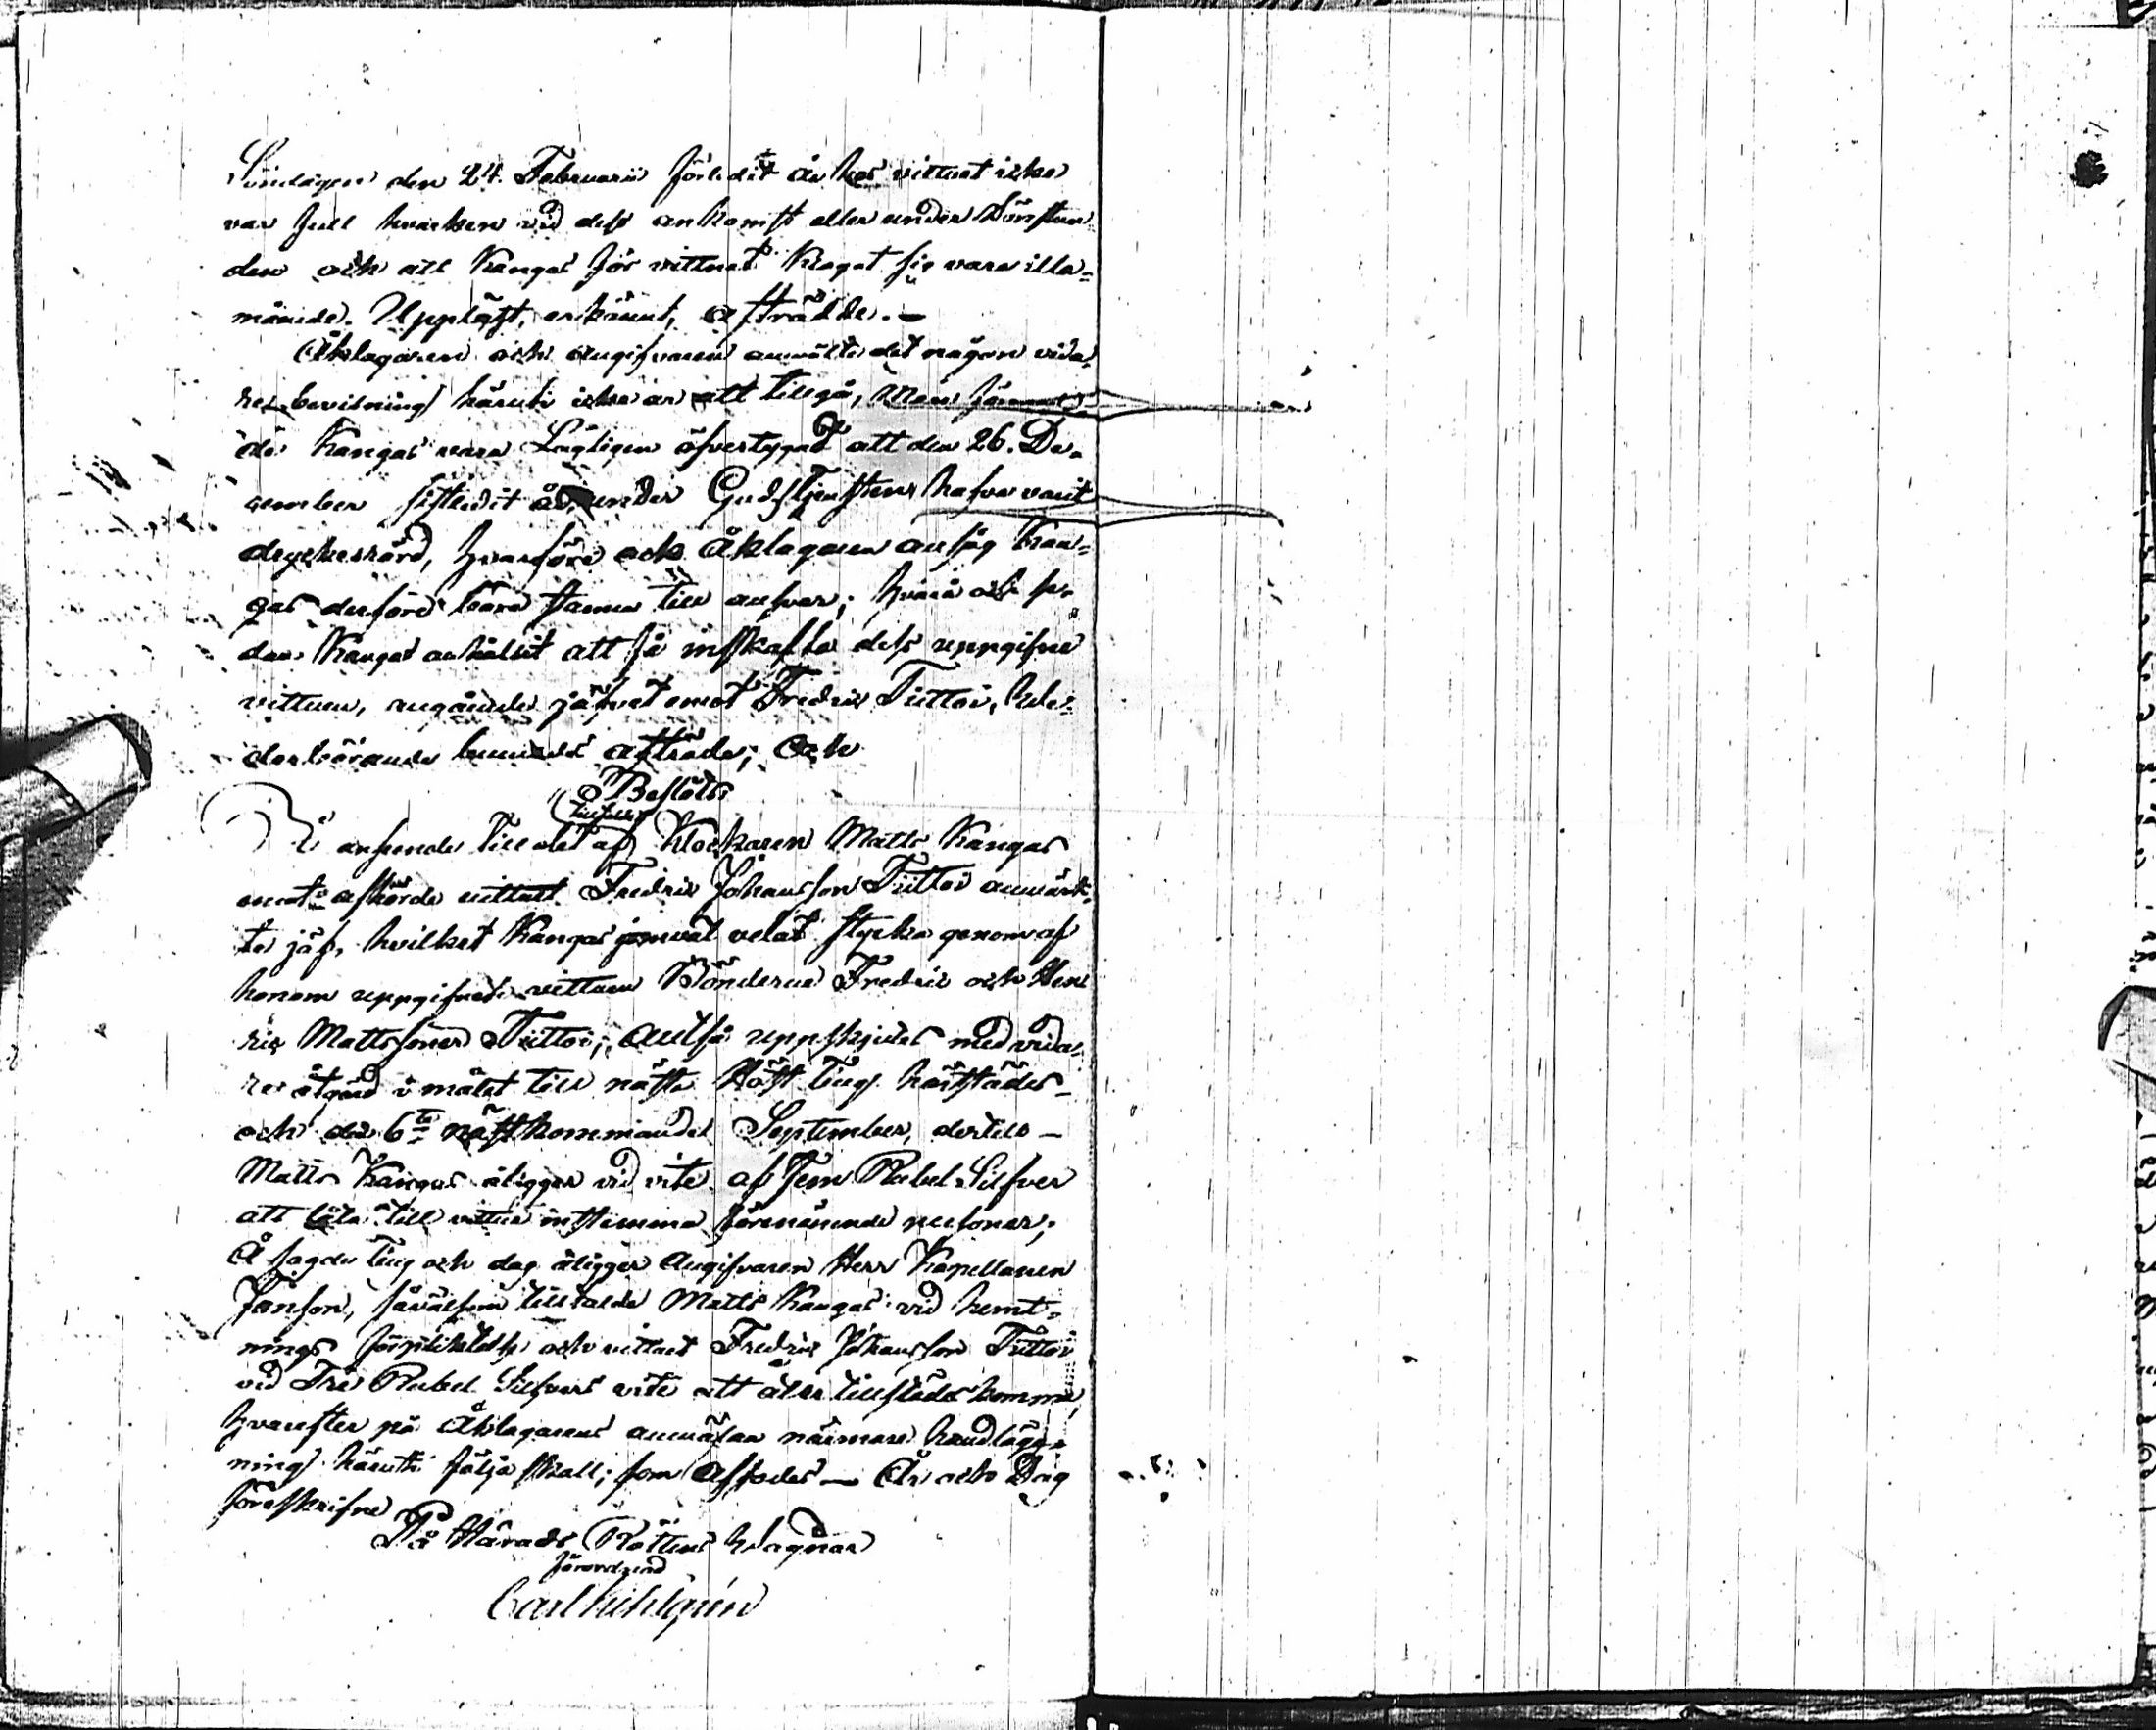 Söndagen den 24. Februarii förledit år hos vittnet icke
var full hvarken vid dess ankomst eller under Bönstun
den och att Kangas för vittnet klagat sig vara illa=
mående. Uppläst, erkännt, afträdde. —
Åklagaren och angifvaren anmälte det någon vida-
re bevisning häruti icke är att tillgå, Men
de Kangas vara Lagligen öfvertygad att den 26. De-
cember sistledit år, under Gudstjensten hafva varit
dryckesrörd, hvarföre ock Åklagaren ansåg Kan=
gas derföre böra stanna till ansvar; hvarå och se-
dan Kangas anhållit att få inskaffa dess uppgifne
vittnen, angående jäfvet emot Fredric Tiittoi,
derbörande afträda; Och
Beslöts
I anseende till det af Klockaren Matts Kangas
emot afhörde vittnet Fredric Johansson Tiittoi anmärk-
te jäf, hvilket Kangas jemväl velat styrka genom af
honom uppgifvne vittnen Bönderne Fredric och Hen
ric Mattssöner Tiittoi; Alltså uppskjutes med vida-
re åtgärd i målet till nästa Höst Ting härstädes —
och den 6te nästkommande September, dertill —
Matts Kangas åligger vid vite af Fem Rubel Silfver
att låta till vittne instemma förenämnde personer;
Å sagde Ting och dag åligger Angifvaren Herr Kapellanen
Jonson, såväl som tilltalde Matts Kangas vid hemt-
nings förpliktelse och vittnet Fredric Johansson Tiittoi
vid Tre Rubel Silfvers vite att åter tillstädes komma,
hvarefter på Åklagarens anmälan närmare handlägg-
ning häruti följa skall; som afsades — År och Dag
föreskrifne
På Härads Rättens Wägnar
förordnad
Carl